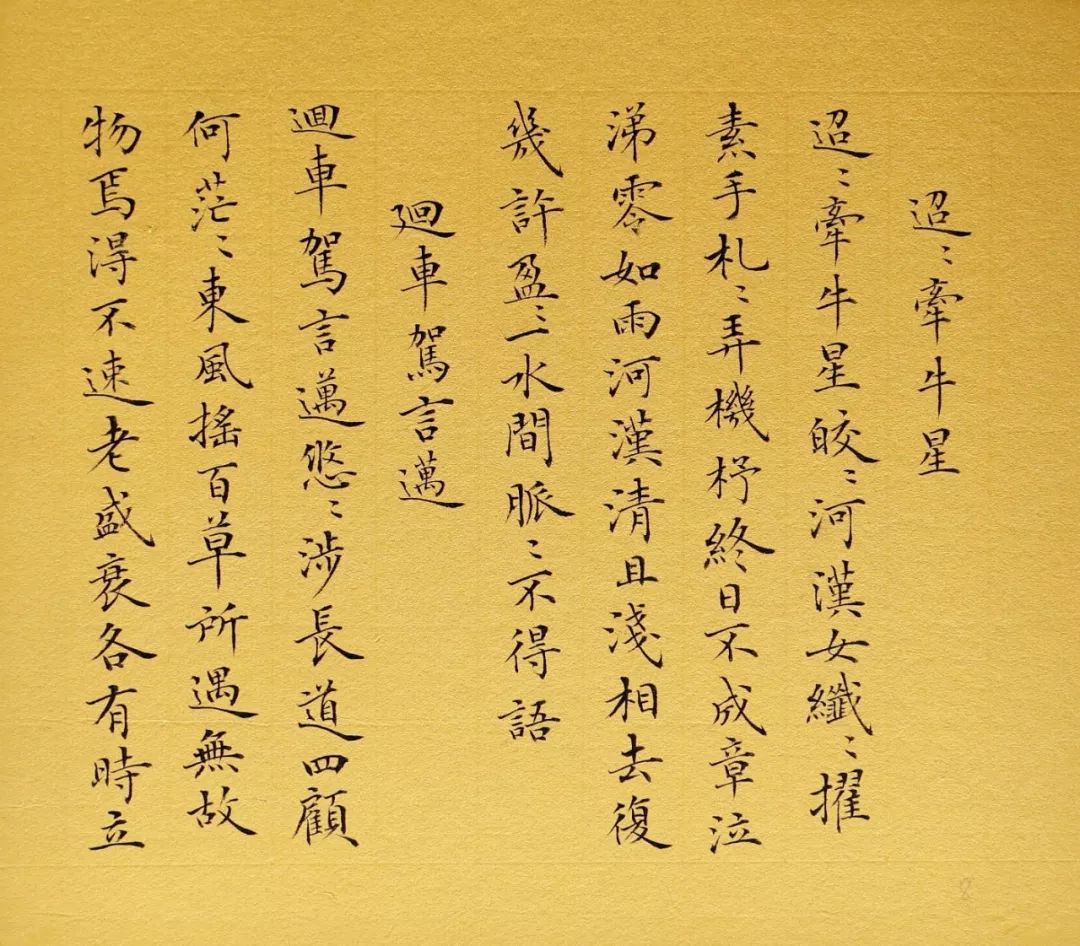 迢〻牽牛星
迢〻牽牛星皎〻河漢女纖〻擢
素手札〻弄機杼終日不成章泣
涕零如雨河漢清且淺相去復
幾許盈〻一水間脈〻不得語
迴車駕言邁
迴車駕言邁悠〻涉長道四顧
何茫〻東風搖百草所遇無故
物焉得不速老盛衰各有時立
8